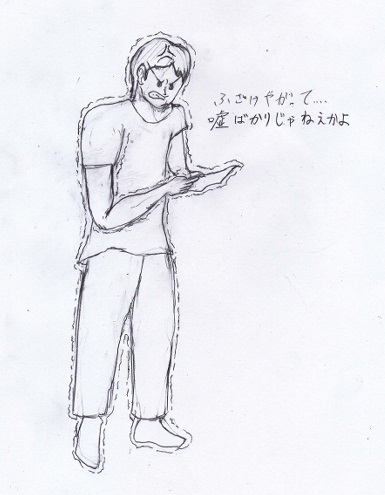 ふざけやがって....
嘘ばかりじゃねえかよ